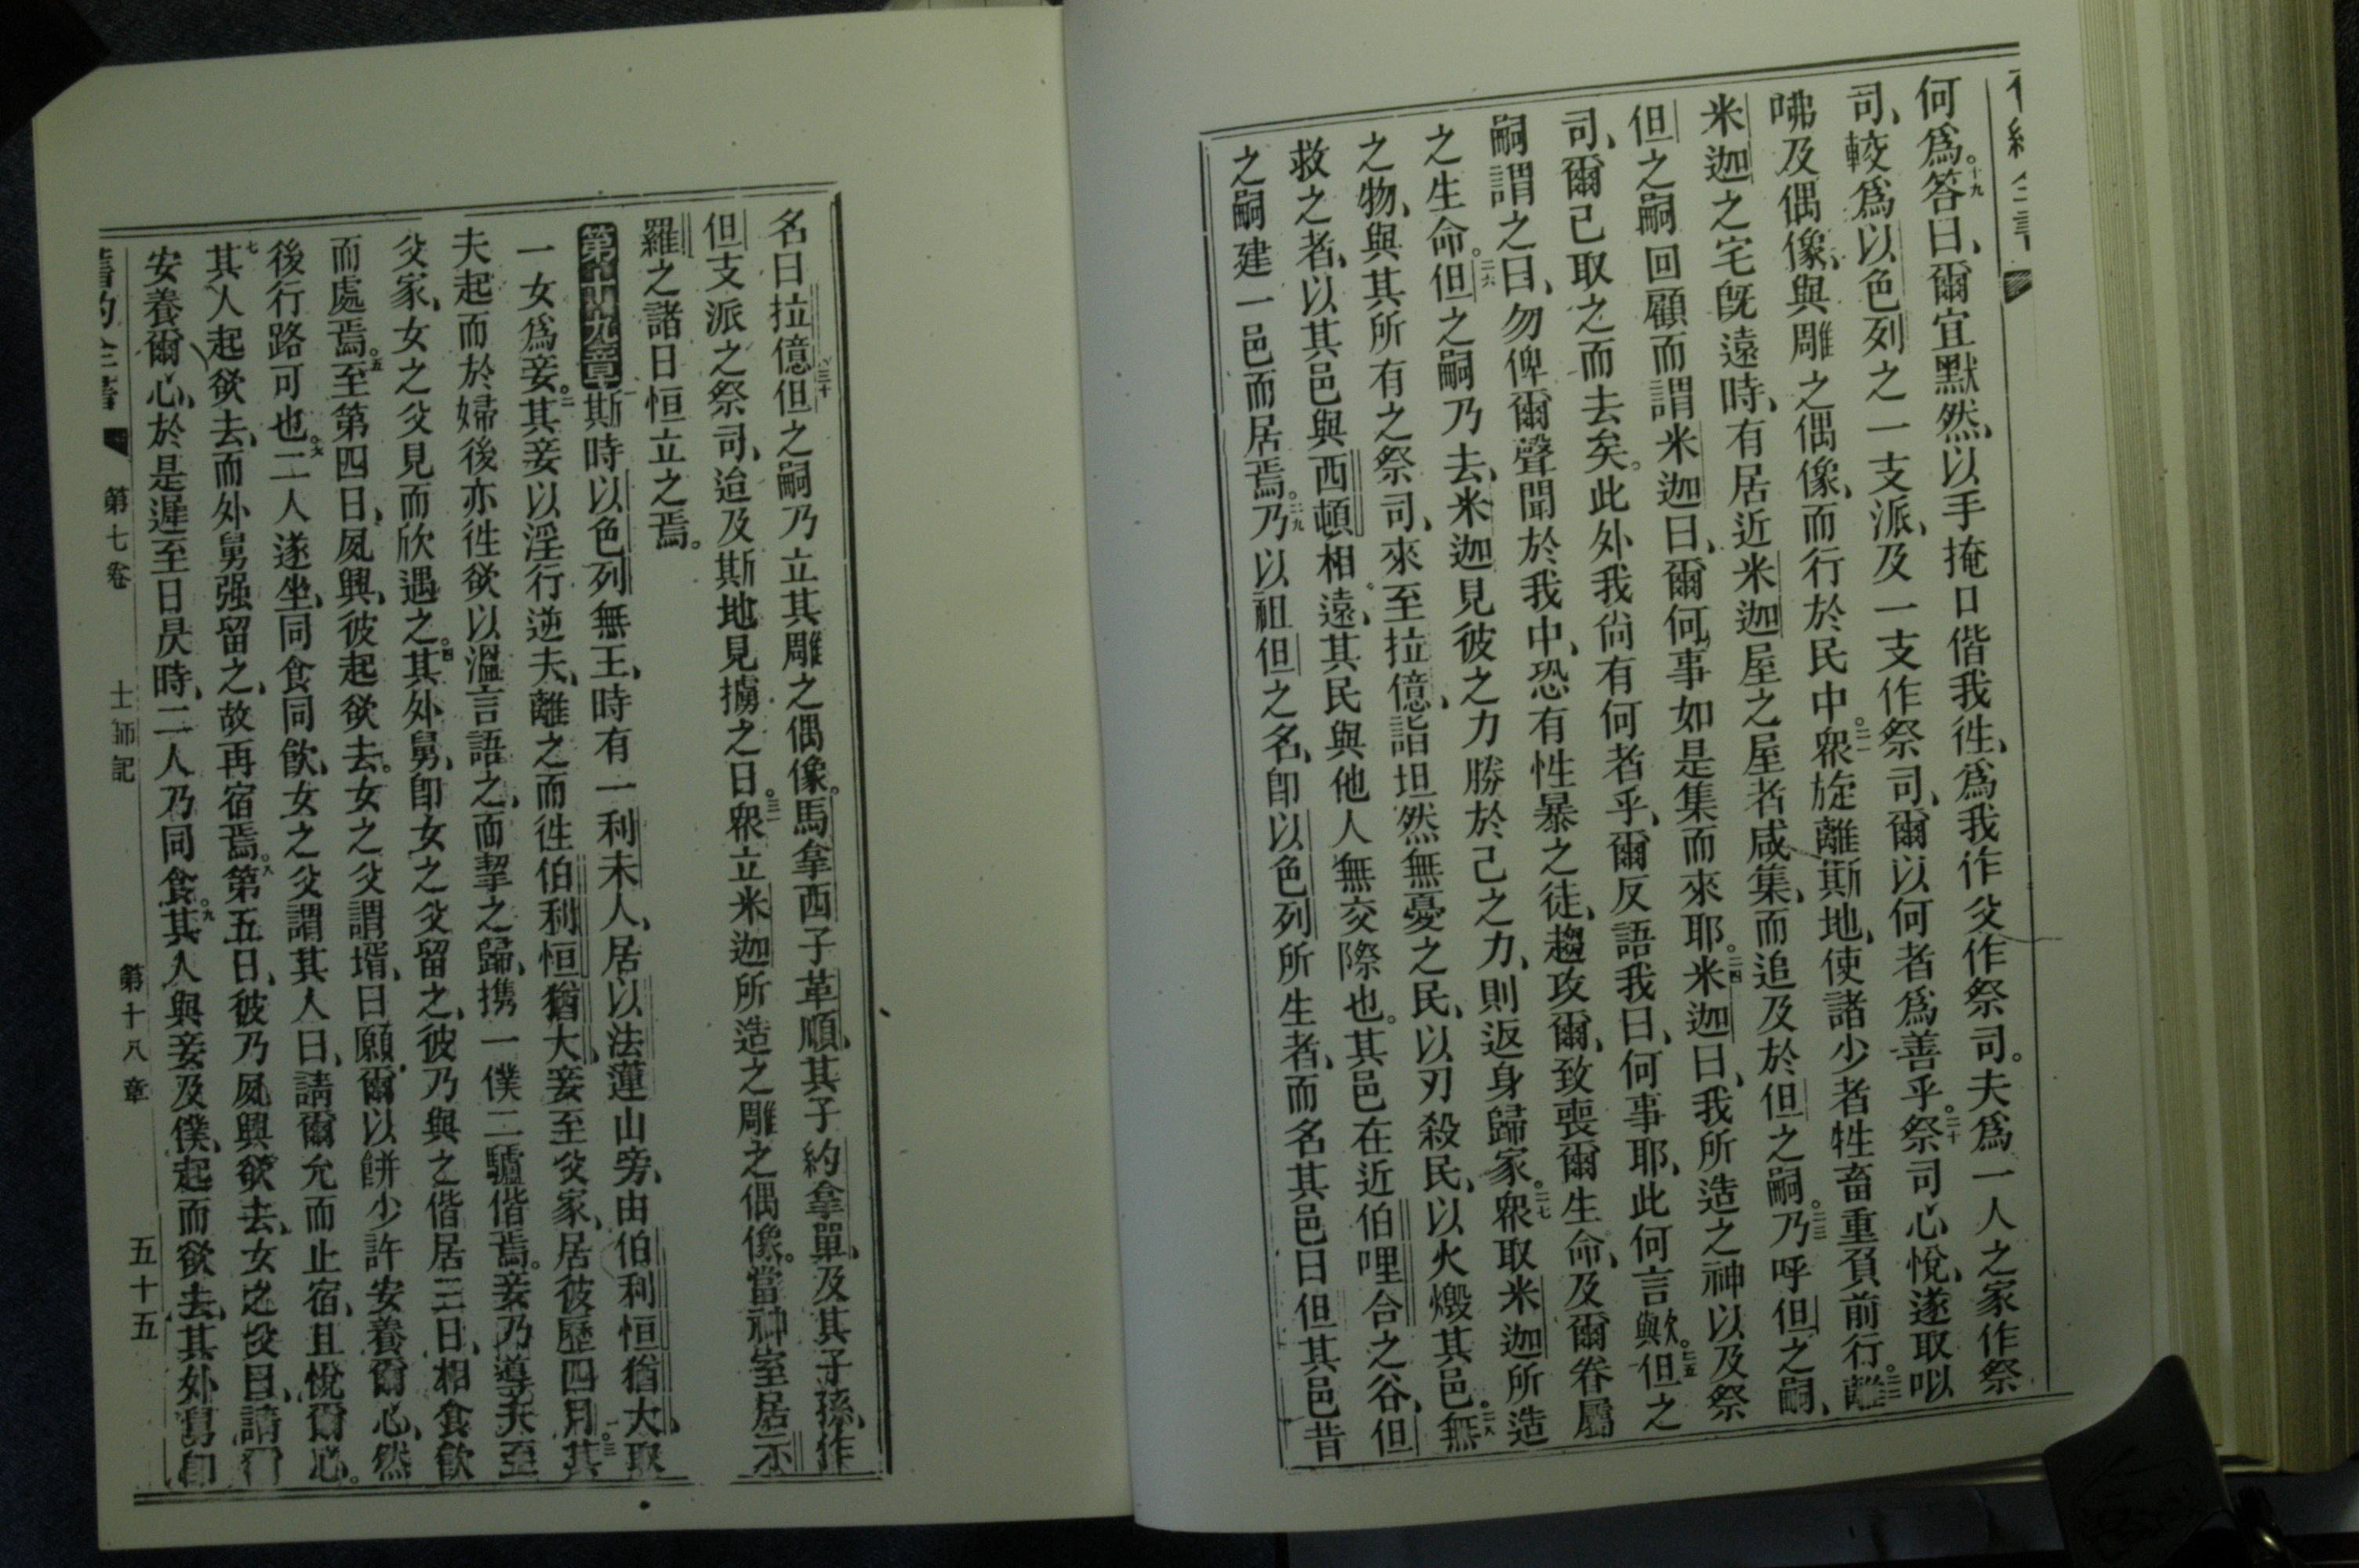 何爲。十九答曰、爾宜默然、以手掩口偕我徃、爲我作父作祭司。夫爲一人之家作祭
司、較爲以色列之一支派、及一支作祭司、爾以何者爲善乎。二十祭司心悅、遂取以
咈及偶像、與雕之偶像、而行於民中。二一衆旋離斯地、使諸少者牲畜重負前行。二二離
米迦之宅旣遠時、有居近米迦屋之屋者咸集、而追及於但之嗣。二三乃呼但之嗣、
但之嗣回顧而謂米迦曰、爾何事如是集而來耶。二四米迦曰、我所造之神以及祭
司、爾已取之而去矣。此外我尙有何者乎、爾反語我曰、何事耶、此何言歟。二五但之
嗣謂之曰、勿俾爾聲聞於我中、恐有性暴之徒、趨攻爾、致喪爾生命、及爾眷屬
之生命。二六但之嗣乃去、米迦見彼之力勝於己之力、則返身歸家。二七衆取米迦所造
之物、與其所有之祭司、來至拉億、詣坦然無憂之民、以刃殺民、以火燬其邑。二八無
救之者、以其邑與西頓相遠、其民與他人無交際也。其邑在近伯哩合之谷、但
之嗣建一邑而居焉。二九乃以祖但之名、卽以色列所生者、而名其邑曰但其邑昔
名曰拉億三十但之嗣乃立其雕之偶像。馬拿西子革順、其子約拿單、及其子孫、作
但支派之祭司、迨及斯地見擄之日。三一衆立米迦所造之雕之偶像。當神室居示
羅之諸日恒立之焉。
第十九章斯時以色列無王、時有一利未人、居以法蓮山旁、由伯利恒猶大、取
一女爲妾。二其妾以淫行逆夫、離之而徃伯利恒猶大、妾至父家、居彼歷四月。三其
夫起而於婦後亦徃欲以溫言語之、而挈之歸、携一僕二驢偕焉。妾乃導夫至
父家、女之父見而欣遇之。四其外舅、卽女之父留之、彼乃與之偕居三日、相食飲
而處焉。五至第四日、夙興、彼起欲去。女之父謂壻、曰願爾以餅少許安養爾心、然
後行路可也。六二人遂坐、同食同飲、女之父謂其人曰、請爾允而止宿、且悅爾心。
七其人起欲去、而外舅强留之、故再宿焉。八第五日、彼乃夙興欲去、女之父曰、請爾
安養爾心、於是遲至日昃時、二人乃同食。九其人與妾及僕、起而欲去、其外舅卽
第七卷 士師記 第十八章 五十五